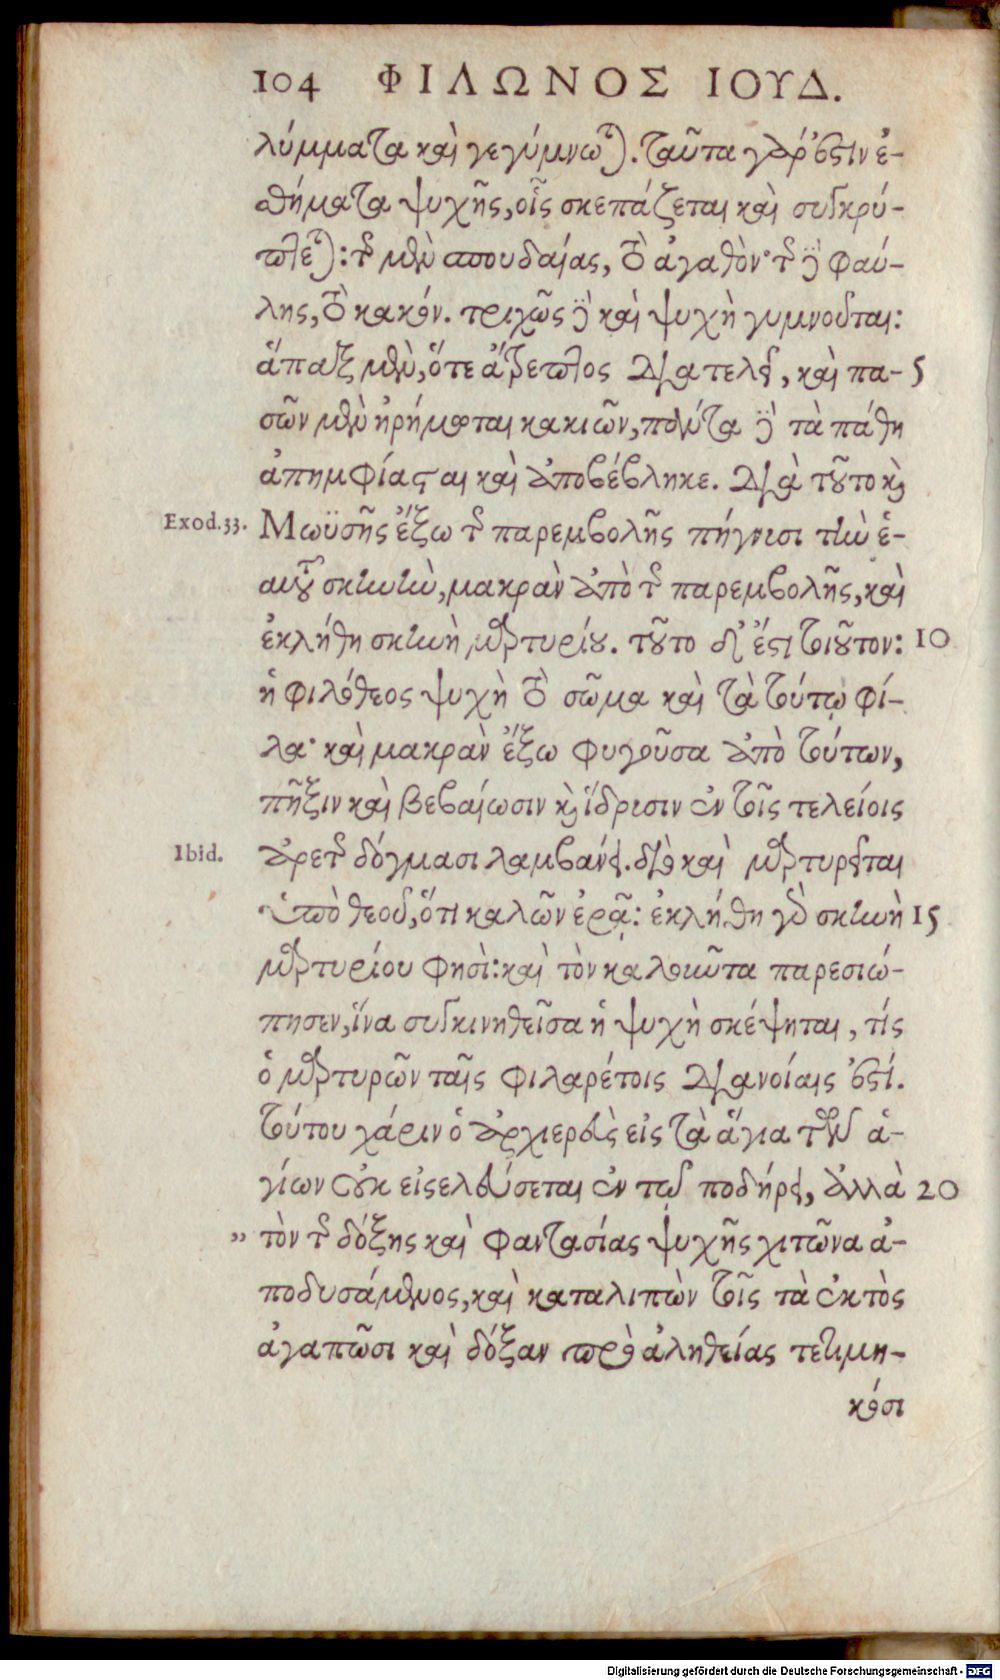 104 ΦΙΛΩΝΟΣ ΙΟΥΔ.
λύμματα καὶ γεγύμνωται. ταῦτα γάρ ἐστιν ἐ-
θήματα ψυχῆς, οἷς σκεπάζεται καὶ συγκρύ-
πτεται: τῆς μὲν σπουδαίας, τὸ ἀγαθὸν· τῆς δὲ φαύ-
λης, τὸ κακόν. τριχῶς δὲ καὶ ψυχὴ γυμνοῦται:
ἅπαξ μὲν, ὅτε ἄτρεπτος διατελεῖ, καὶ πα- 5
σῶν μὲν ἠρήμωται κακιῶν, πάντα δὲ τὰ πάθη
ἀπημφίασται καὶ ἀποβέβληκε. διὰ τοῦτο καὶ
Exod.33. Μωϋσῆς ἔξω τῆς παρεμβολῆς πήγνυσι τὴν ἑ-
αυτοῦ σκηνὴν, μακρὰν ἀπὸ τῆς παρεμβολῆς, καὶ
ἐκλήθη σκηνὴ μαρτυρίου. τοῦτο δ' ἔστι τοιοῦτον: 10
ἡ φιλόθεος ψυχὴ τὸ σῶμα καὶ τὰ τούτῳ φί-
λα· καὶ μακρὰν ἔξω φυγοῦσα ἀπὸ τούτων,
πῆξιν καὶ βεβαίωσιν καὶ ἵδρυσιν ἐν τοῖς τελείοις
Ibid. ἀρετῆς δόγμασι λαμβάνει. διὸ καὶ μαρτυρεῖται
ὑπὸ θεοῦ, ὅτι καλῶν ἐρᾷ: ἐκλήθη γὰρ σκηνὴ 15
μαρτυρίου φησὶ: καὶ τὸν καλοῦντα παρεσιώ-
πησεν, ἵνα συγκινηθεῖσα ἡ ψυχὴ σκέψηται, τίς
ὁ μαρτυρῶν ταῖς φιλαρέτοις διανοίαις ἐστί.
τούτου χάριν ὁ ἀρχιερεὺς εἰς τὰ ἅγια τῶν ἁ-
γίων οὐκ εἰςελεύσεται ἐν τῷ ποδήρει, ἀλλὰ 20
" τὸν τῆς δόξης καὶ φαντασίας ψυχῆς χιτῶνα ἀ-
ποδυσάμενος, καὶ καταλιπὼν τοῖς τὰ ἐκτὸς
ἀγαπῶσι καὶ δόξαν πρὸ ἀληθείας τετιμη-
κόσι
Digitalisierung gefördert durch die Deutsche Forschungsgemeinschaft - DFG